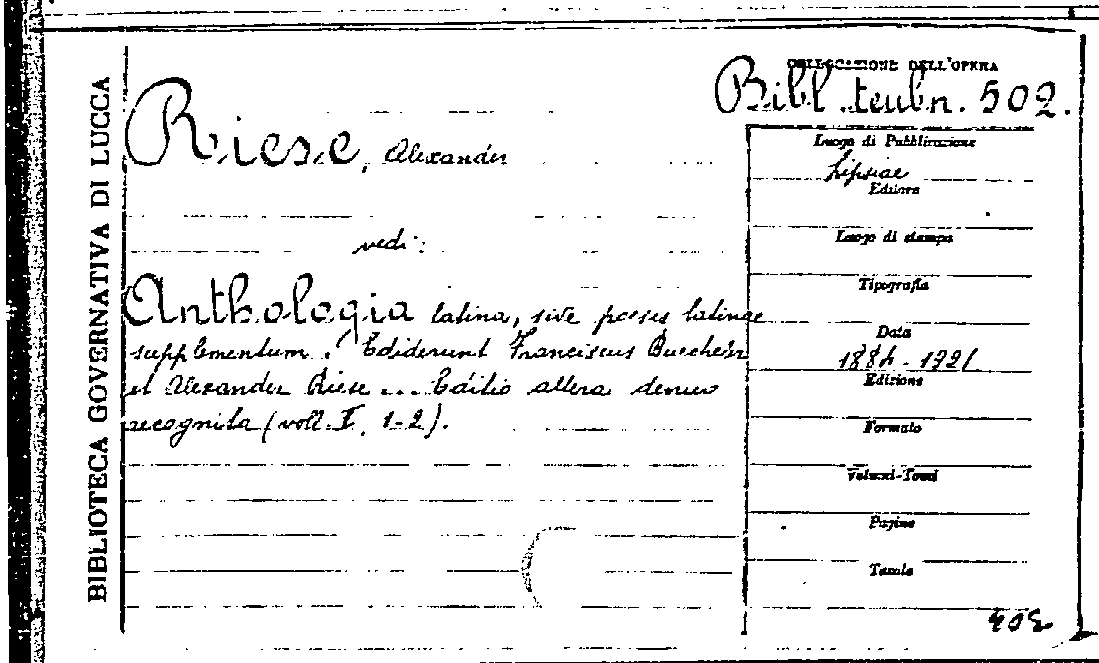 BIBLIOTECA GOVERNATIVA DI LUCCA
COLLOCAZIONE DELL'OPERA
Bibl. teubn. 502.
Riese, Alexander
vedi:
Anthologia latina, sive poesis latinae
supplementum. Ediderunt Franciscus Buecheler
et Alexander Riese ... Editio altera denuo
recognita (voll. I, 1-2).
Luogo di Pubblicazione
Lipsiae
Editore
Luogo di stampa
Tipografia
Data
Edizione
Formato
Volumi-Tomi
Pagine
Tavole